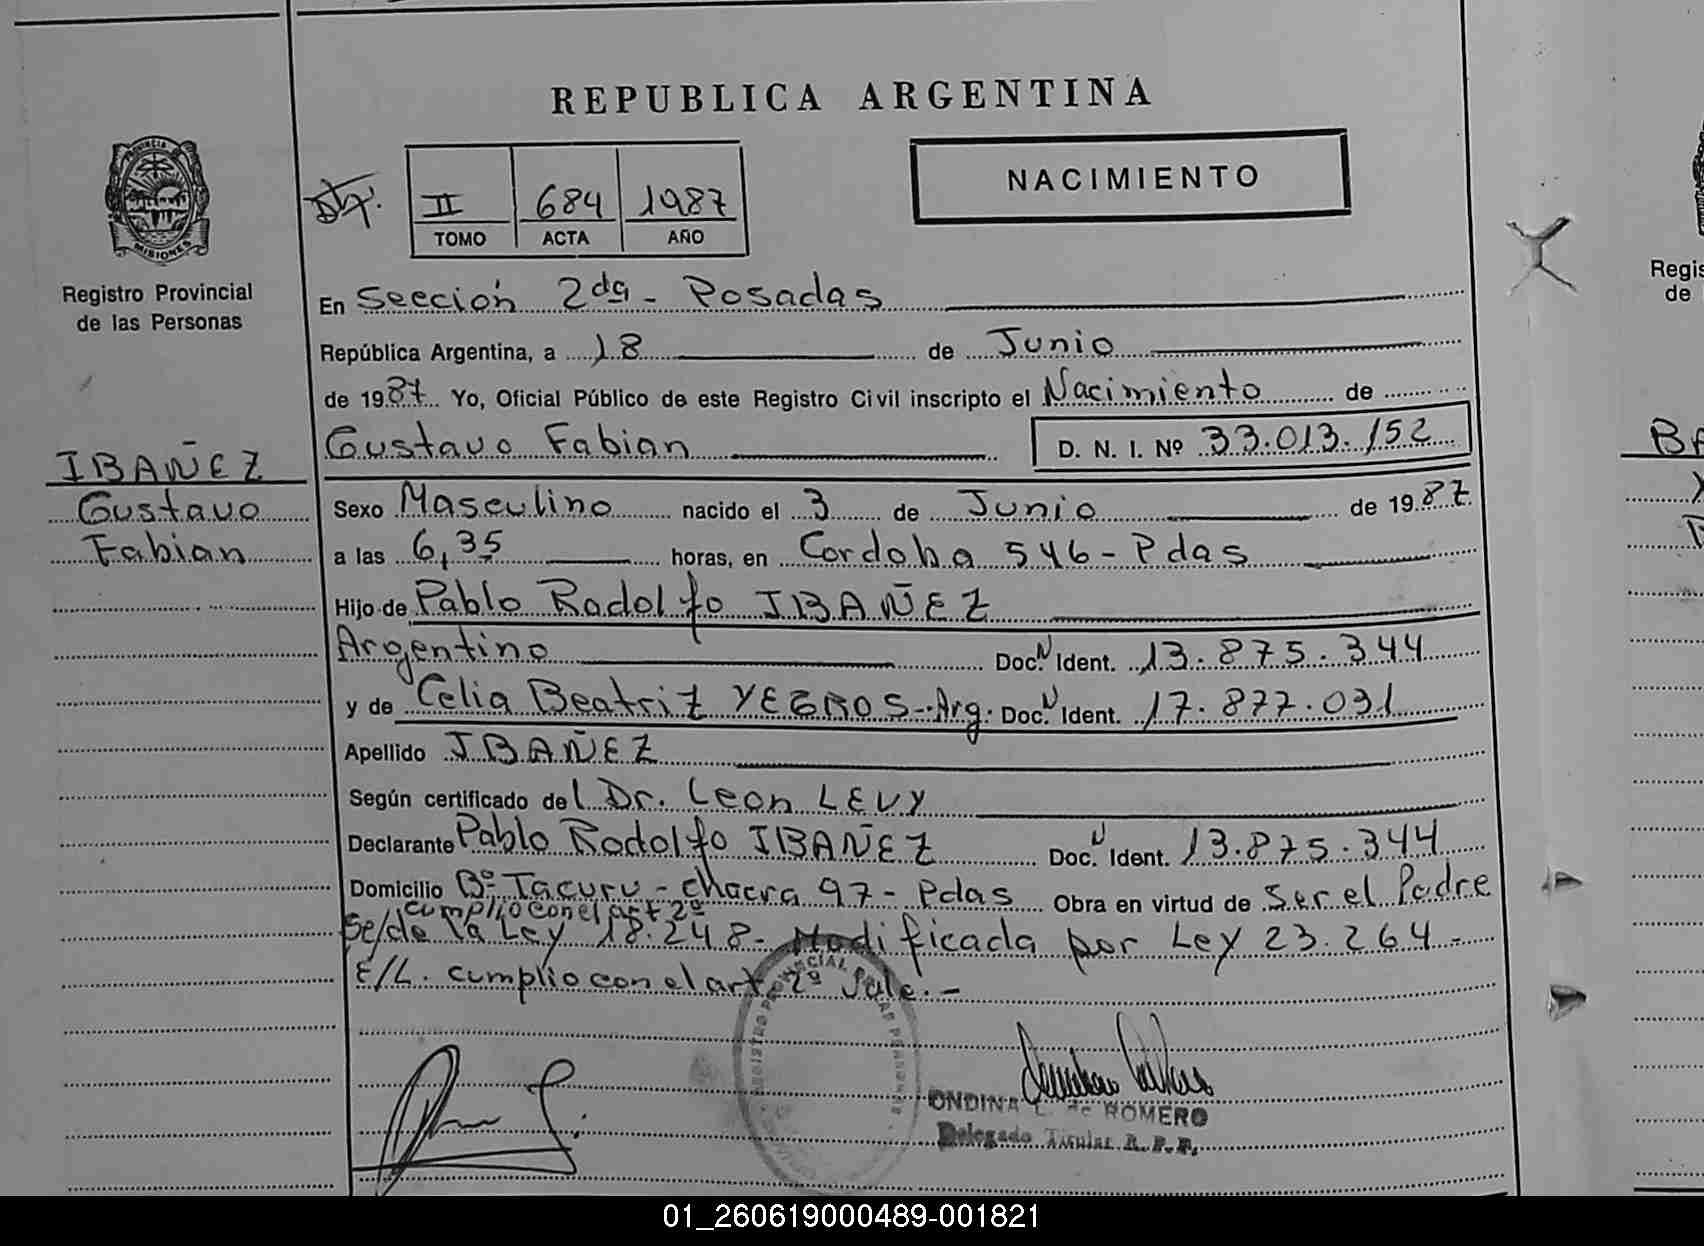 REPUBLICA ARGENTINA
PROVINCIA DE
MISIONES
Registro Provincial
de las Personas
II 684 1987
TOMO ACTA AÑO
NACIMIENTO
En Sección 2da - Posadas
República Argentina, a 18 de Junio
de 1987. Yo, Oficial Público de este Registro Civil inscripto el Nacimiento de
Gustavo Fabian D. N. I. Nº 33.013.152
IBAÑEZ
Gustavo
Fabian
Sexo Masculino nacido el 3 de Junio de 1987.
a las 6,35 horas, en Cordoba 546 - Pdas
Hijo de Pablo Rodolfo IBAÑEZ
Argentino Doc. N Ident. 13.875.344
y de Celia Beatriz YEGROS - Arg. Doc. N Ident. 17.877.031
Apellido IBAÑEZ
Según certificado del Dr. Leon LEVY
Declarante Pablo Rodolfo IBAÑEZ Doc. N Ident. 13.875.344
Domicilio Bº Tacuru - chacra 97 - Pdas Obra en virtud de Ser el Padre
cumplio con el art 2º
Se/de la Ley 18.248 - Modificada por Ley 23.264 -
E/L. cumplio con el art. 2º Vale. -
ONDINA L. de ROMERO
Delegado Titular R. P. P.
Regis
de
BA
01_260619000489-001821